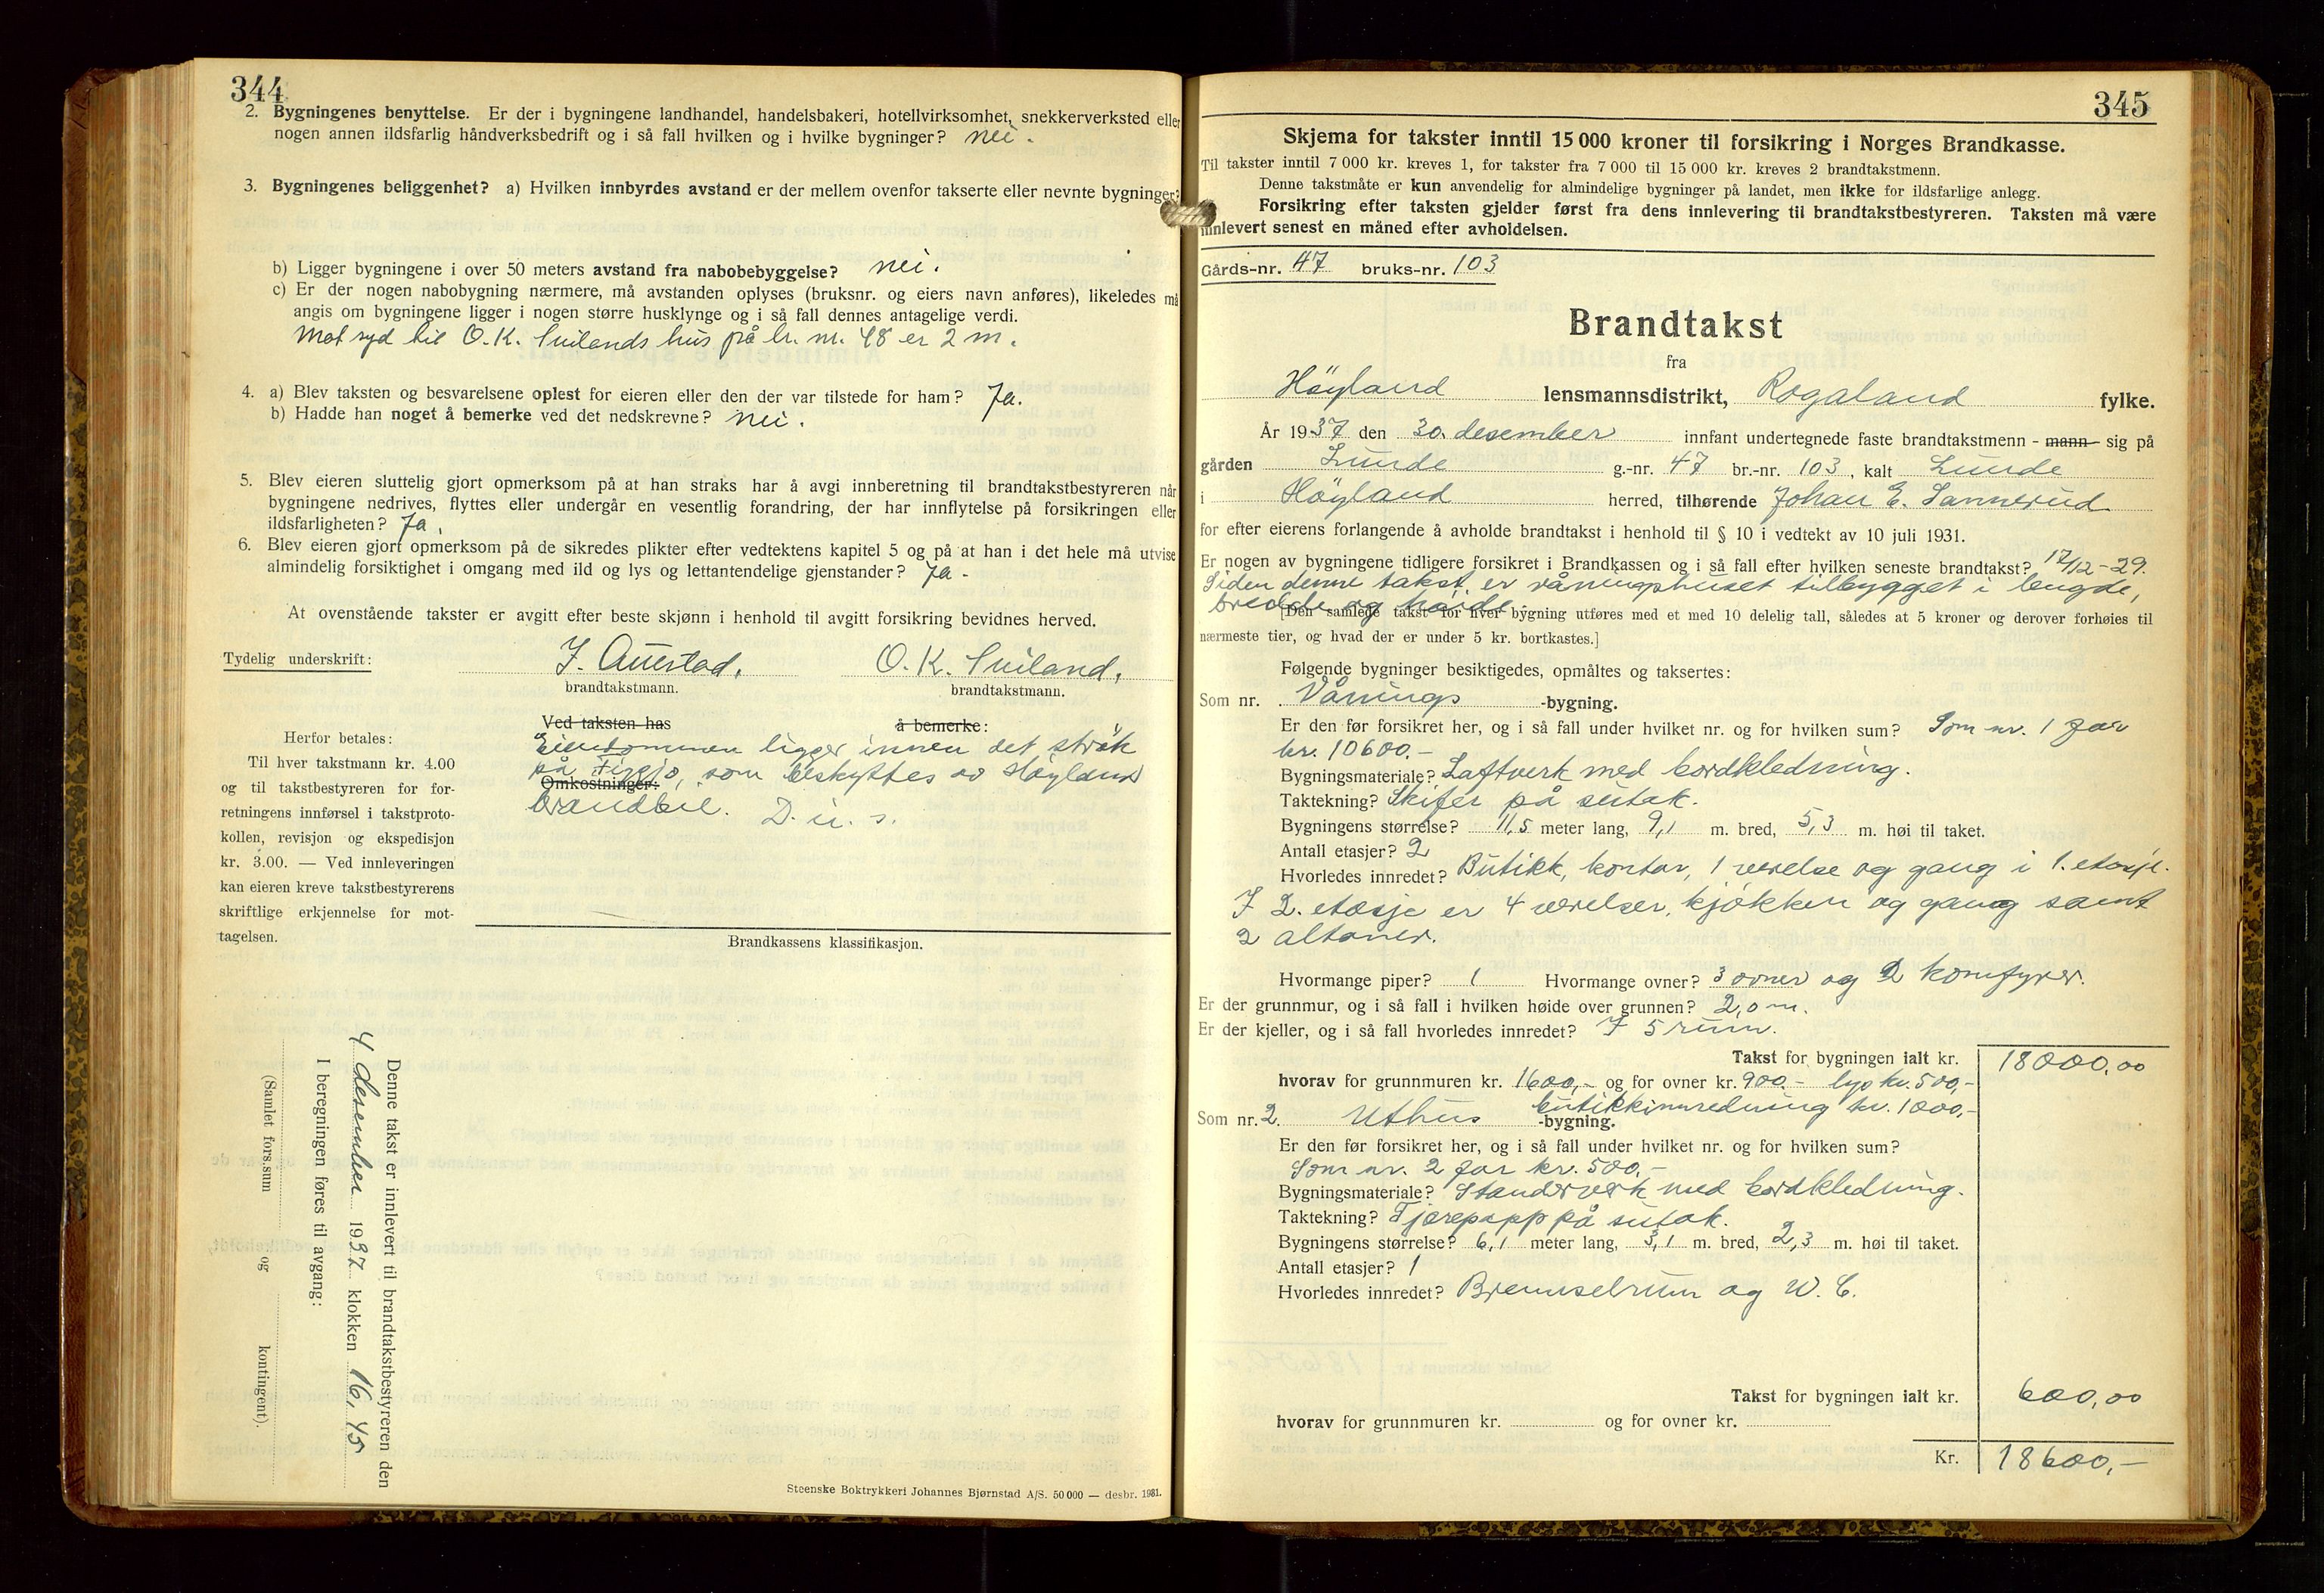 344
2. Bygningenes benyttelse. Er der i bygningene landhandel, handelsbakeri, hotellvirksomhet, snekkerverksted eller
nogen annen ildsfarlig håndverksbedrift og i så fall hvilken og i hvilke bygninger? nei.
3. Bygningenes beliggenhet? a) Hvilken innbyrdes avstand er der mellem ovenfor takserte eller nevnte bygninger?
b) Ligger bygningene i over 50 meters avstand fra nabobebyggelse? nei.
c) Er der nogen nabobygning nærmere, må avstanden oplyses (bruksnr. og eiers navn anføres), likeledes må
angis om bygningene ligger i nogen større husklynge og i så fall dennes antagelige verdi.
Mot syd til O. K. Svilands hus på br. nr. 48 er 2 m.
4. a) Blev taksten og besvarelsene oplest for eieren eller den der var tilstede for ham? Ja.
b) Hadde han noget å bemerke ved det nedskrevne? nei.
5. Blev eieren sluttelig gjort opmerksom på at han straks har å avgi innberetning til brandtakstbestyreren når
bygningene nedrives, flyttes eller undergår en vesentlig forandring, der har innflytelse på forsikringen eller
ildsfarligheten? Ja.
6. Blev eieren gjort opmerksom på de sikredes plikter efter vedtektens kapitel 5 og på at han i det hele må utvise
almindelig forsiktighet i omgang med ild og lys og lettantendelige gjenstander? Ja.
At ovenstående takster er avgitt efter beste skjønn i henhold til avgitt forsikring bevidnes herved.
Tydelig underskrift: J. Auestad. O. K. Sviland.
brandtakstmann. brandtakstmann.
Ved taksten has å bemerke:
Eiendommen ligger innen det strøk
på Figgjo, som beskyttes av Høyland
Omkostninger:
brandbil. D. u. s.
Herfor betales:
Til hver takstmann kr. 4.00
og til takstbestyreren for for-
retningens innførsel i takstproto-
kollen, revisjon og ekspedisjon
kr. 3.00. — Ved innleveringen
kan eieren kreve takstbestyrerens
skriftlige erkjennelse for mot-
tagelsen.
Brandkassens klassifikasjon.
Denne takst er innlevert til brandtakstbestyreren den
4 desember 1937 klokken 16,45
I beregningen føres til avgang:
(Samlet fors.sum og kontingent).
Steenske Boktrykkeri Johannes Bjørnstad A/S. 50 000 — desbr. 1931.
345
Skjema for takster inntil 15 000 kroner til forsikring i Norges Brandkasse.
Til takster inntil 7 000 kr. kreves 1, for takster fra 7 000 til 15 000 kr. kreves 2 brandtakstmenn.
Denne takstmåte er kun anvendelig for almindelige bygninger på landet, men ikke for ildsfarlige anlegg.
Forsikring efter taksten gjelder først fra dens innlevering til brandtakstbestyreren. Taksten må være
innlevert senest en måned efter avholdelsen.
Gårds-nr. 47 bruks-nr. 103
Brandtakst
fra
Høyland lensmannsdistrikt, Rogaland fylke.
År 1937 den 30. desember innfant undertegnede faste brandtakstmenn - mann - sig på
gården Lunde g.-nr. 47 br.-nr. 103, kalt Lunde
i Høyland herred, tilhørende Johan E. Sannerud
for efter eierens forlangende å avholde brandtakst i henhold til § 10 i vedtekt av 10 juli 1931.
Er nogen av bygningene tidligere forsikret i Brandkassen og i så fall efter hvilken seneste brandtakst? 17/12-29.
Siden denne takst er våningshuset tilbygget i lengde,
bredde og høide.
[Den samlede takst for hver bygning utføres med et med 10 delelig tall, således at 5 kroner og derover forhøies til
nærmeste tier, og hvad der er under 5 kr. bortkastes.]
Følgende bygninger besiktigedes, opmåltes og taksertes:
Som nr. Vånings -bygning.
Er den før forsikret her, og i så fall under hvilket nr. og for hvilken sum? Som nr. 1 for
kr. 10600.-
Bygningsmateriale? Laftverk med bordkledning.
Taktekning? Skifer på sutak.
Bygningens størrelse? 11,5 meter lang, 9,1 m. bred, 5,3 m. høi til taket.
Antall etasjer? 2
Hvorledes innredet? Butikk, kontor, 1 værelse og gang i 1. etasje.
I 2. etasje er 4 værelser, kjøkken og gang samt
2 altaner.
Hvormange piper? 1 Hvormange ovner? 3 ovner og 2 komfyrer.
Er der grunnmur, og i så fall i hvilken høide over grunnen? 2,0 m.
Er der kjeller, og i så fall hvorledes innredet? I 5 rum.
Takst for bygningen ialt kr. 18000,00
hvorav for grunnmuren kr. 1600,- og for ovner kr. 900.- lys kr. 500,-
butikkinnredning kr. 1000,-
Som nr. 2. Uthus -bygning.
Er den før forsikret her, og i så fall under hvilket nr. og for hvilken sum?
Som nr. 2 for kr. 500,-
Bygningsmateriale? Standerverk med bordkledning.
Taktekning? Tjærepapp på sutak.
Bygningens størrelse? 6,1 meter lang, 3,1 m. bred, 2,3 m. høi til taket.
Antall etasjer? 1
Hvorledes innredet? Brenselrum og W. C.
Takst for bygningen ialt kr. 600,00
hvorav for grunnmuren kr. og for ovner kr.
Kr. 18600,-